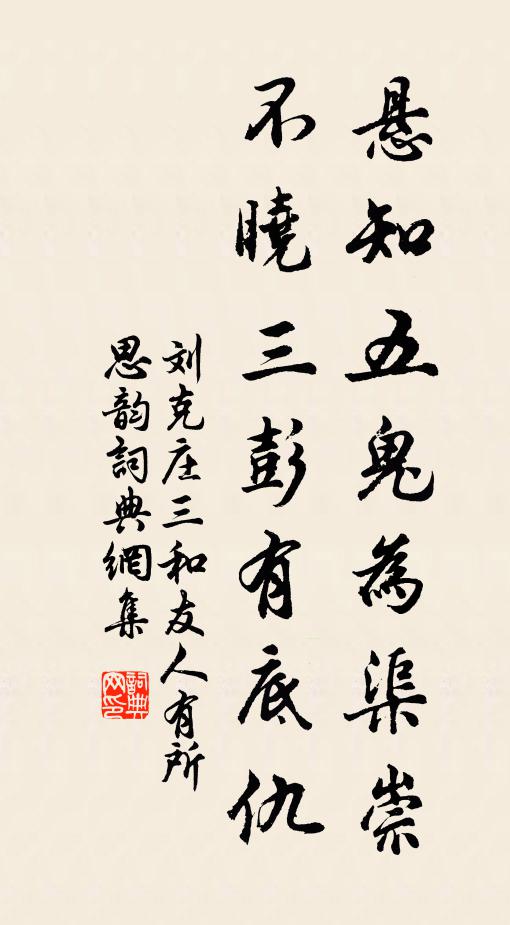 悬知五鬼為渠祟
不曉三彭有底仇
刘克庄三和友人有所
思韵詞典網集
詞典
网印